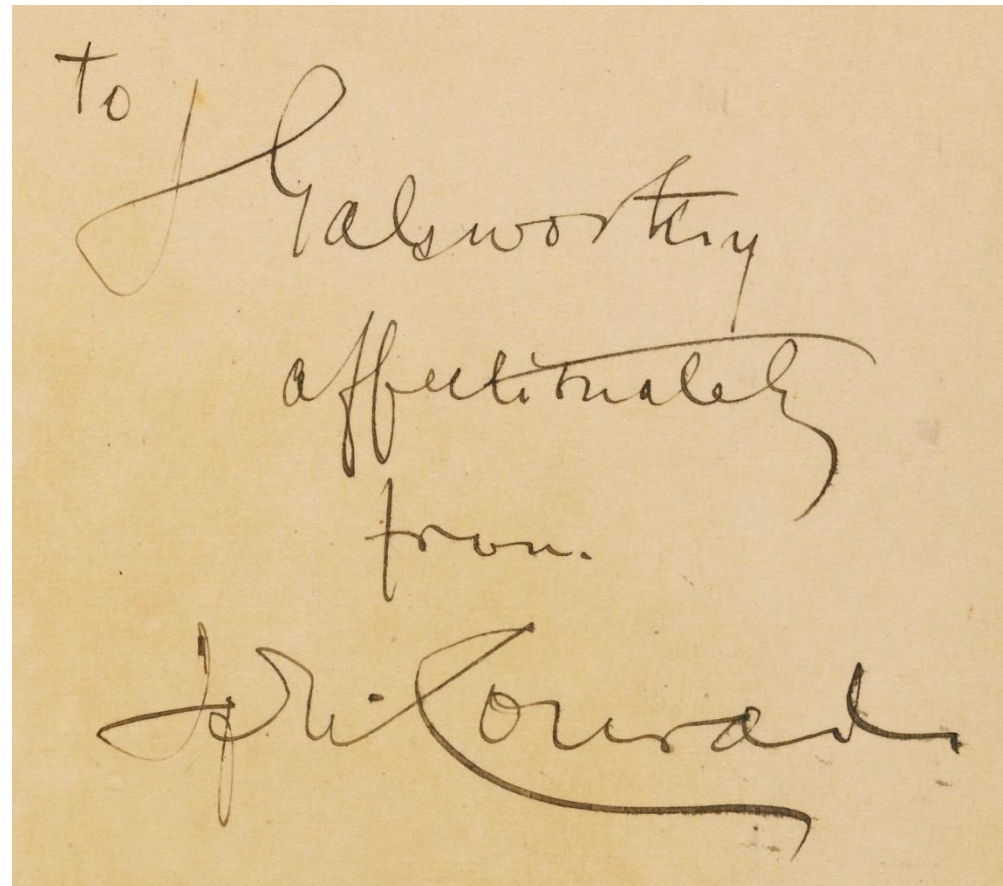 To
J Galsworthy
affectionately
from.
Jph. Conrad.